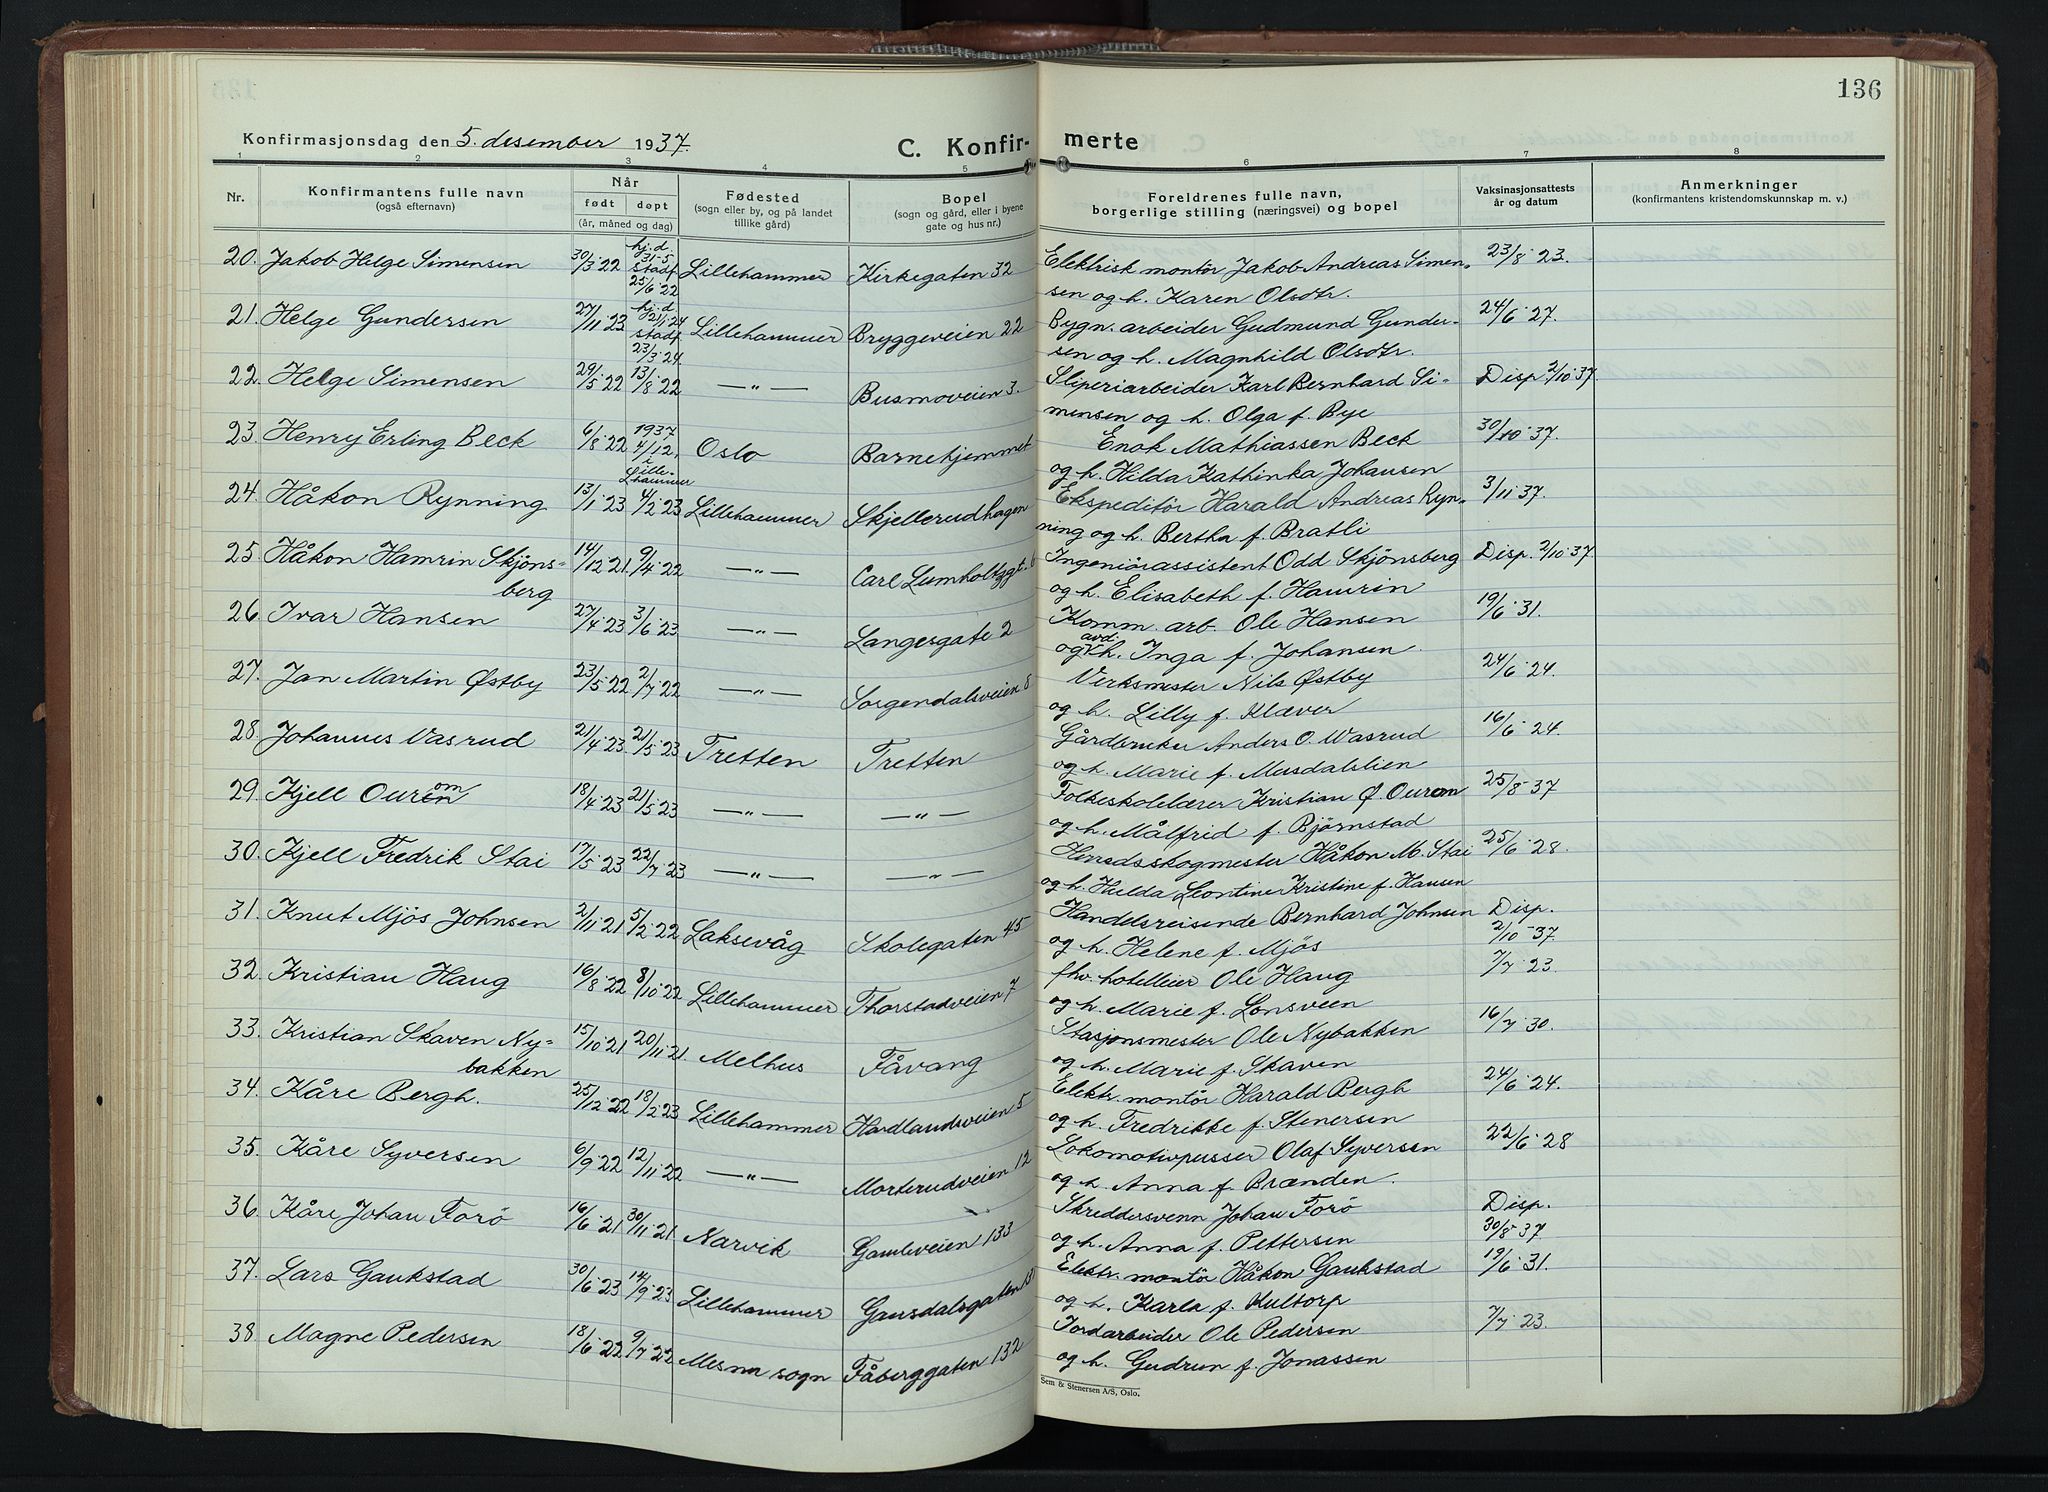 136
Konfirmasjonsdag den 5. desember 1937.
C. Konfir- merte
1 2 3 4 5 6 7 8
Nr.
Konfirmantens fulle navn
(også efternavn)
Når
født døpt
(år, måned og dag)
Fødested
(sogn eller by, og på landet
tillike gård)
Bopel
(sogn og gård, eller i byene
gate og hus nr.)
Foreldrenes fulle navn,
borgerlige stilling (næringsvei) og bopel
Vaksinasjonsattests
år og datum
Anmerkninger
(konfirmantens kristendomskunnskap m. v.)
20. Jakob Helge Simensen 30/3 22 hj. d. 31-5 stadf. 25/6 22 Lillehammer Kirkegaten 32 Elektrisk montör Jakob Andreas Simen- 23/8 23.
sen og h. Karen Olsdtr.
21. Helge Gundersen 27/11 23 hj. d. 21/1 24 stadf. 23/3 24 Lillehammer Bryggeveien 22 Bygn. arbeider Gudmund Gunder- 24/6 27.
sen og h. Magnhild Olsdtr.
22. Helge Simensen 29/5 22 13/8 22 —"— Busmoveien 3. Sliperiarbeider Karl Bernhard Si- Disp 2/10 37.
mensen og h. Olga f. Bye
23. Henry Erling Beck 6/8 22 1937 4/12. i Lille-hammer Oslo Barnehjemmet Enok Mathiassen Beck 30/10 37.
og h. Hilda Kathinka Johansen
24. Håkon Rynning 13/1 23 4/2 23 Lillehammer Skjellerudhagen Ekspeditör Harald Andreas Ryn- 3/11 37.
ning og h. Bertha f. Bratli
25. Håkon Hamrin Skjöns- 14/12 21. 9/4 22 —"— Carl Lumholtzgt. 6 Ingeniörassistent Odd Skjönsberg Disp. 2/10 37
berg og h. Elisabeth f. Hamrin
26. Ivar Hansen 27/4 23 3/6 23 —"— Langesgate 2 Komm. arb. Ole Hansen 19/6 31.
og avd. h. Inga f. Johansen
27. Jan Martin Østby 23/5 22 2/7 22 —"— Sorgendalsveien 8 Verksmester Nils Østby 24/6 24.
og h. Lilly f. Klæver
28. Johannes Vasrud 21/4 23. 21/5 23 Tretten Tretten Gårdbruker Anders O. Wasrud 16/6 24.
og h. Marie f. Musdalslien
29. Kjell Ouren om 18/4 23 21/5 23 —"— —"— Folkeskolelærer Kristian Ø. Ourom 25/8 37
og h. Målfrid f. Björnstad
30. Kjell Fredrik Stai 17/5 23 22/7 23 —"— —"— Herredsskogmester Håkon M. Stai 25/6 28.
og h. Hulda Leontine Kristine f. Hansen
31. Knut Mjös Johnsen 2/11 21 5/2 22 Laksevåg Skolegaten 45 Handelsreisende Bernhard Johnsen Disp. 2/10 37.
og h. Helene f. Mjös
32. Kristian Haug 16/8 22 8/10 22 Lillehammer Thorstadveien 7 fhv. hotelleier Ole Haug 7/7 23.
og h. Marie f. Lonsveen
33. Kristian Skaven Ny- 15/10 21 20/11 21 Melhus Fåvang Stasjonsmester Ole Nybakken 16/7 30.
bakken og h. Marie f. Skaven
34. Kåre Bergh. 25/12 22 18/2 23 Lillehammer Hordlandsveien 5 Elektr. montör Harald Bergh 24/6 24.
og h. Fredrikke f. Stenersen
35. Kåre Syversen 6/9 22 12/11 22 —"— Morterudveien 12 Lokomotivpusser Olaf Syversen 22/6 28
og h. Anna f. Brænden.
36. Kåre Johan Forö 16/6 21 30/11 21 Narvik Gamleveien 133 Skreddersvenn Johan Forö Disp. 30/8 37.
og h. Anna f. Pettersen
37. Lars Gaukstad 30/6 23 14/9 23 Lillehammer Gausdalsgaten Elektr. montör Håkon Gaukstad 19/6 31.
og h. Karla f. Kultorp
38. Magne Pedersen 18/6 22 9/7 22 Mesna sogn Fåberggaten 132 Jordarbeider Ole Pedersen 7/7 23.
og h. Gudrun f. Jonassen
Sem & Stenersen A/S, Oslo.